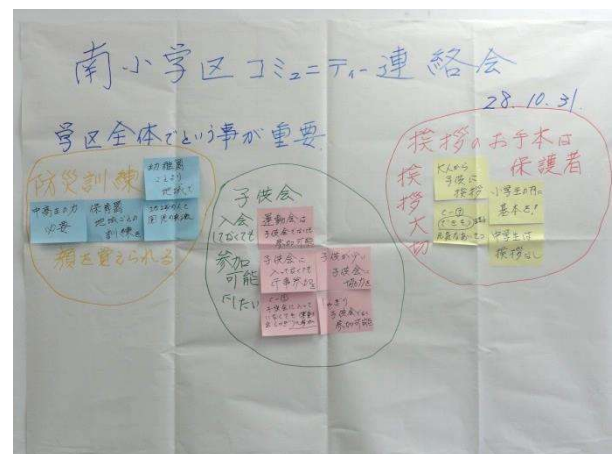 南小学区コミュニティー連絡会
28.10.31.
学区全体でという事が重要
防災訓練
幼稚園
こんどり
地域して
中高生の力
必要
保育園
地域ごとの
訓練を
顔を覚えられる
子供会
入会
してなくても
参加
可能
にしたい
運動会は
子供会でなくても
参加可能
子供会に
入ってなくても
行事参加を
子供が少い
子供会に
協力を
子供会に入って
いなくても
やきり
子供会でない
参加可能
挨拶のお手本は
保護者
挨拶大切
大人から
子供に
挨拶
小学生の時に
基本を!
中学生は
挨拶なし